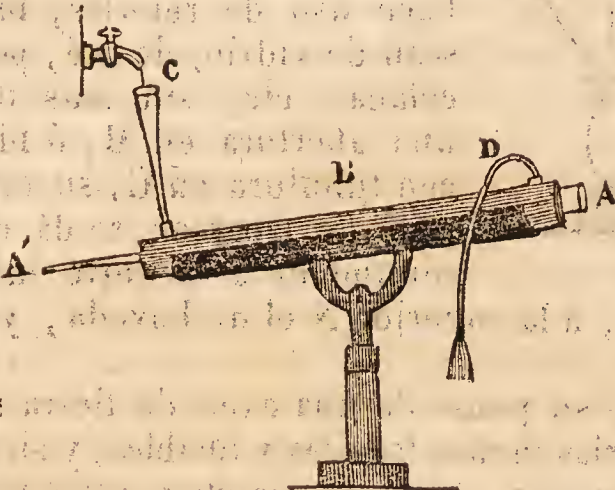 C
D
A
A'